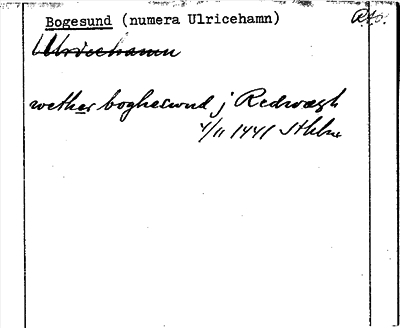 Bogesund (numera Ulricehamn)
Ulricehamn
wether boghesund j Redwægh
4/11 1441 Sthlm